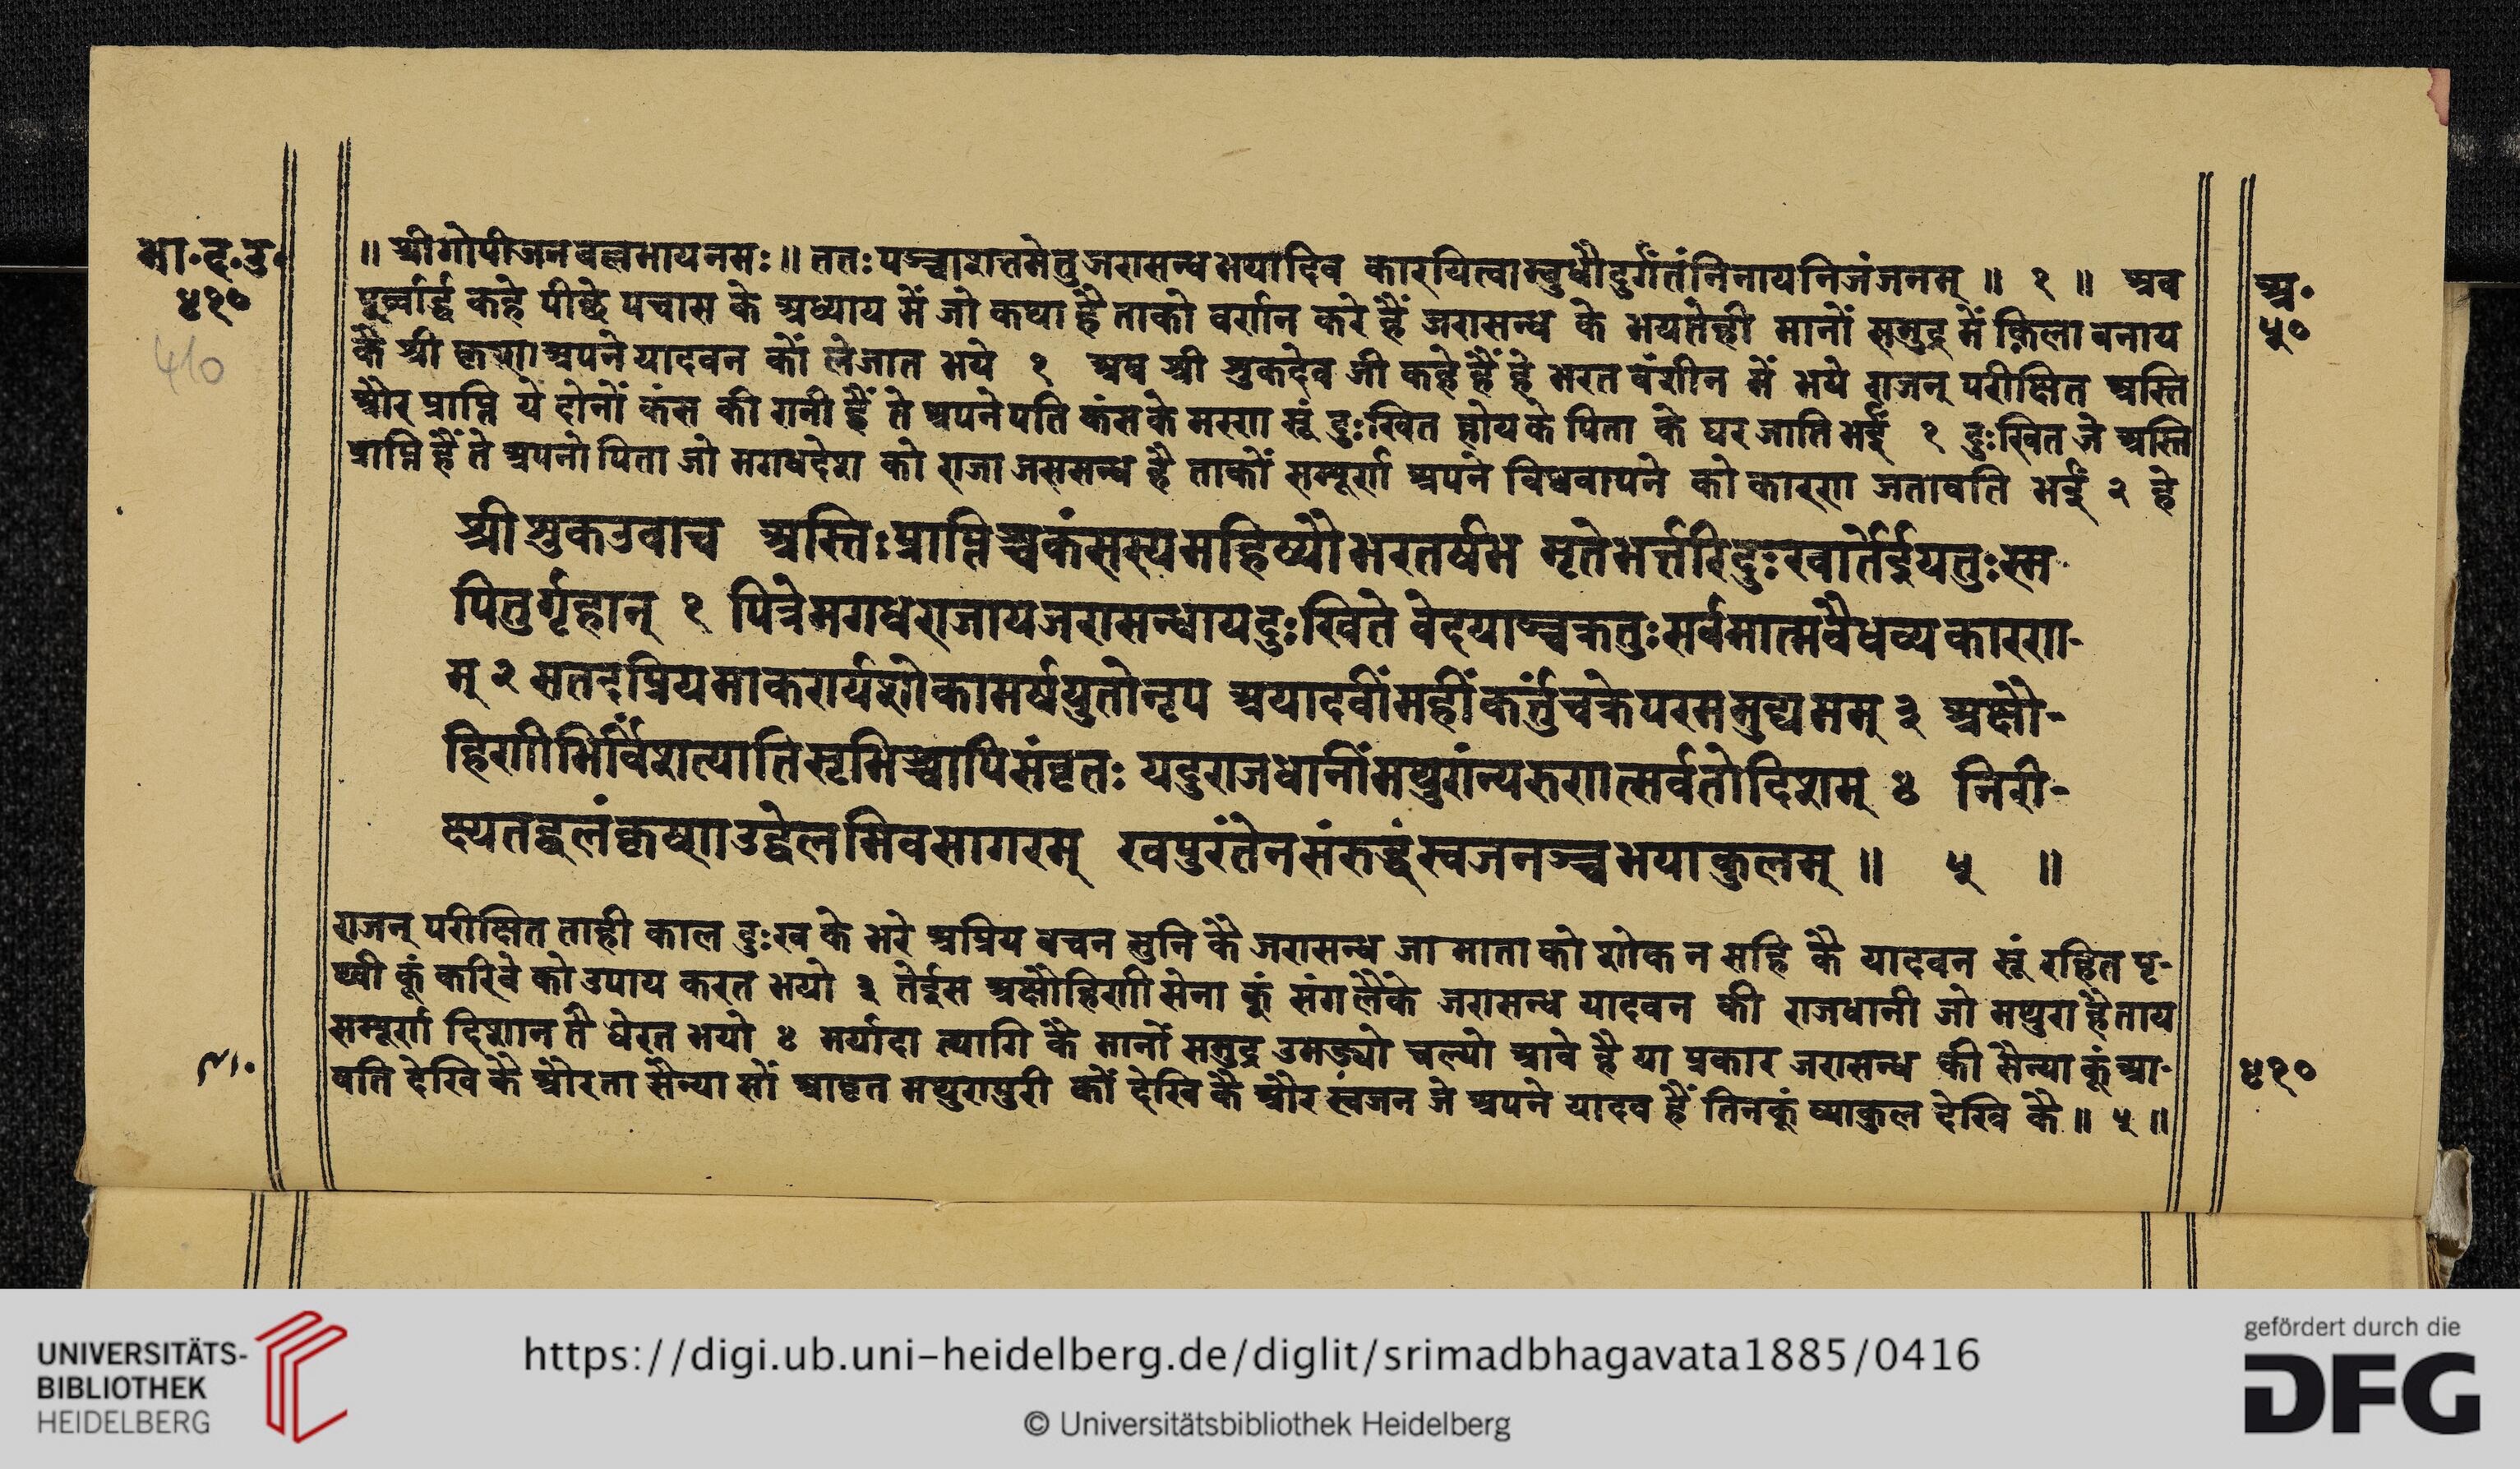 भा॰द॰उ॰
४१०
410
॥ श्रीगोपीजनवल्लभायनमः॥ ततःपञ्चाशत्तमेतुजरासन्धभयादिव कारयित्वाम्बुधौदुर्गंतंनिनायनिजंजनम् ॥ १ ॥ अब
पूर्व्वार्द्ध कहे पीछे पचास के अध्याय में जो कथा है ताको वर्णन करे हैं जरासन्ध के भयतेही मानों समुद्र में क़िला बनाय
कै श्री कृष्ण अपने यादवन कों लेजात भये १ अब श्री शुकदेव जी कहे हैं हे भरत वंशीन में भये राजन् परीक्षित अस्ति
और प्राप्ति ये दोनों कंस की रानी हैं ते अपने पति कंस के मरण सूं दुःखित होय के पिता के घर जाति भईं १ दुःखित जे अस्ति
प्राप्ति हैं ते अपनो पिता जो मगधदेश को राजा जरासन्ध है ताकों सम्पूर्ण अपने विधवापने को कारण जतावति भईं २ हे
श्रीशुकउवाच अस्तिःप्राप्तिश्चकंसस्यमहिष्यौभरतर्षभ मृतेभर्त्तरिदुःखार्तेईयतुःस्म
पितुर्गृहान् १ पित्रेमगधराजायजरासन्धायदुःखिते वेदयाञ्चक्रतुःसर्वमात्मवैधव्यकारण-
म् २ सतदप्रियमाकर्ण्यशोकामर्षयुतोनृप अयादवींमहींकर्त्तुंचक्रेपरममुद्यमम् ३ अक्षौ-
हिणीभिर्विंशत्यातिसृभिश्चापिसंवृतः यदुराजधानींमथुरांन्यरुणत्सर्वतोदिशम् ४ निरी-
क्ष्यतद्बलंकृष्णउद्वेलमिवसागरम् स्वपुरंतेनसंरुद्धंस्वजनञ्चभयाकुलम् ॥ ५ ॥
राजन् परीक्षित ताही काल दुःख के भरे अप्रिय बचन सुनि कै जरासन्ध जामाता को शोक न सहि कै यादवन सूं रहित पृ-
थ्वी कूं करिबे को उपाय करत भयो ३ तेईस अक्षौहिणी सेना कूं संग लैके जरासन्ध यादवन की राजधानी जो मथुरा है ताय
सम्पूर्ण दिशान तै घेरत भयो ४ मर्यादा त्यागि कै मानों समुद्र उमड्यो चल्यो आवे है या प्रकार जरासन्ध की सैन्या कूं आ-
वति देखि कै औरता सैन्या सों आवृत मथुरापुरी कों देखि कै और स्वजन जे अपने यादव हैं तिनकूं व्याकुल देखि कै ॥ ५ ॥
अ॰
५०
रा॰
४१०
UNIVERSITÄTS-
BIBLIOTHEK
HEIDELBERG
https://digi.ub.uni-heidelberg.de/diglit/srimadbhagavata1885/0416
© Universitätsbibliothek Heidelberg
gefördert durch die
DFG